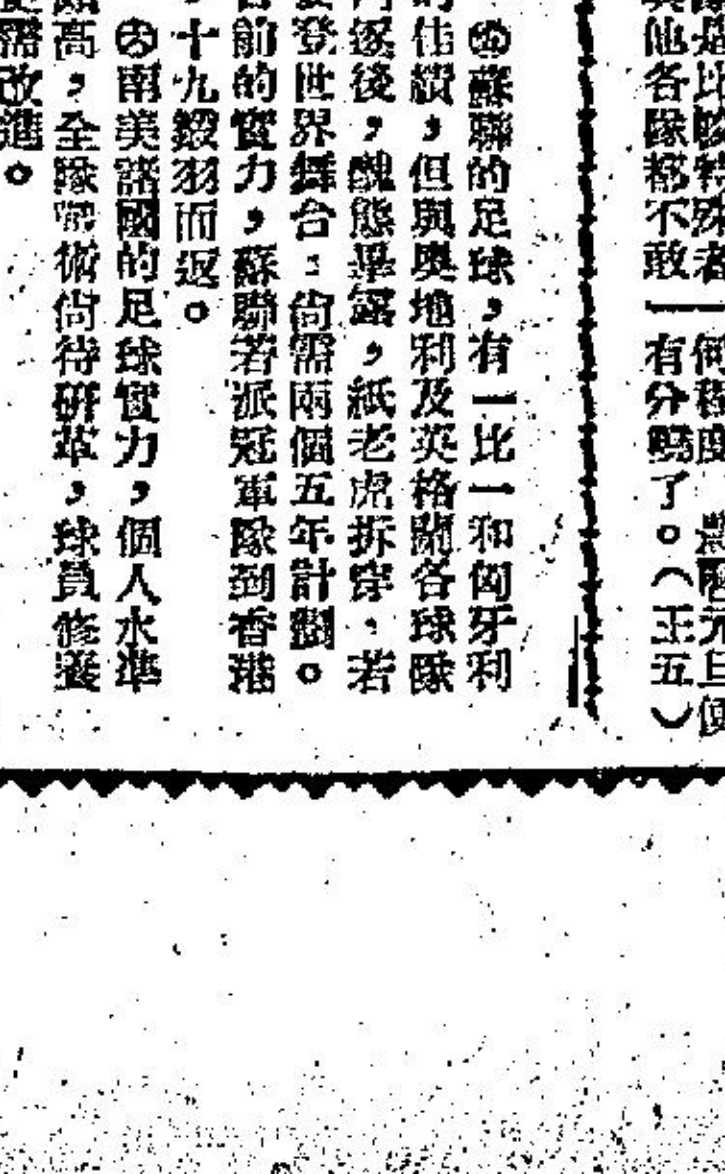 其他各隊都不敢—有分嗎了。（王五）
蘇聯的足球，有一比一和匈牙利
的佳績，但與奧地利及英格蘭各球隊
逐後，醜態畢露，紙老虎拆穿。若
登世界舞台：尚需兩個五年計劃。
前的實力，蘇聯若派冠軍隊到香港
十九鎩羽而返。
㊅南美諸國的足球實力，個人水準
高，全隊戰術尚待研革，球員修養
需改進。